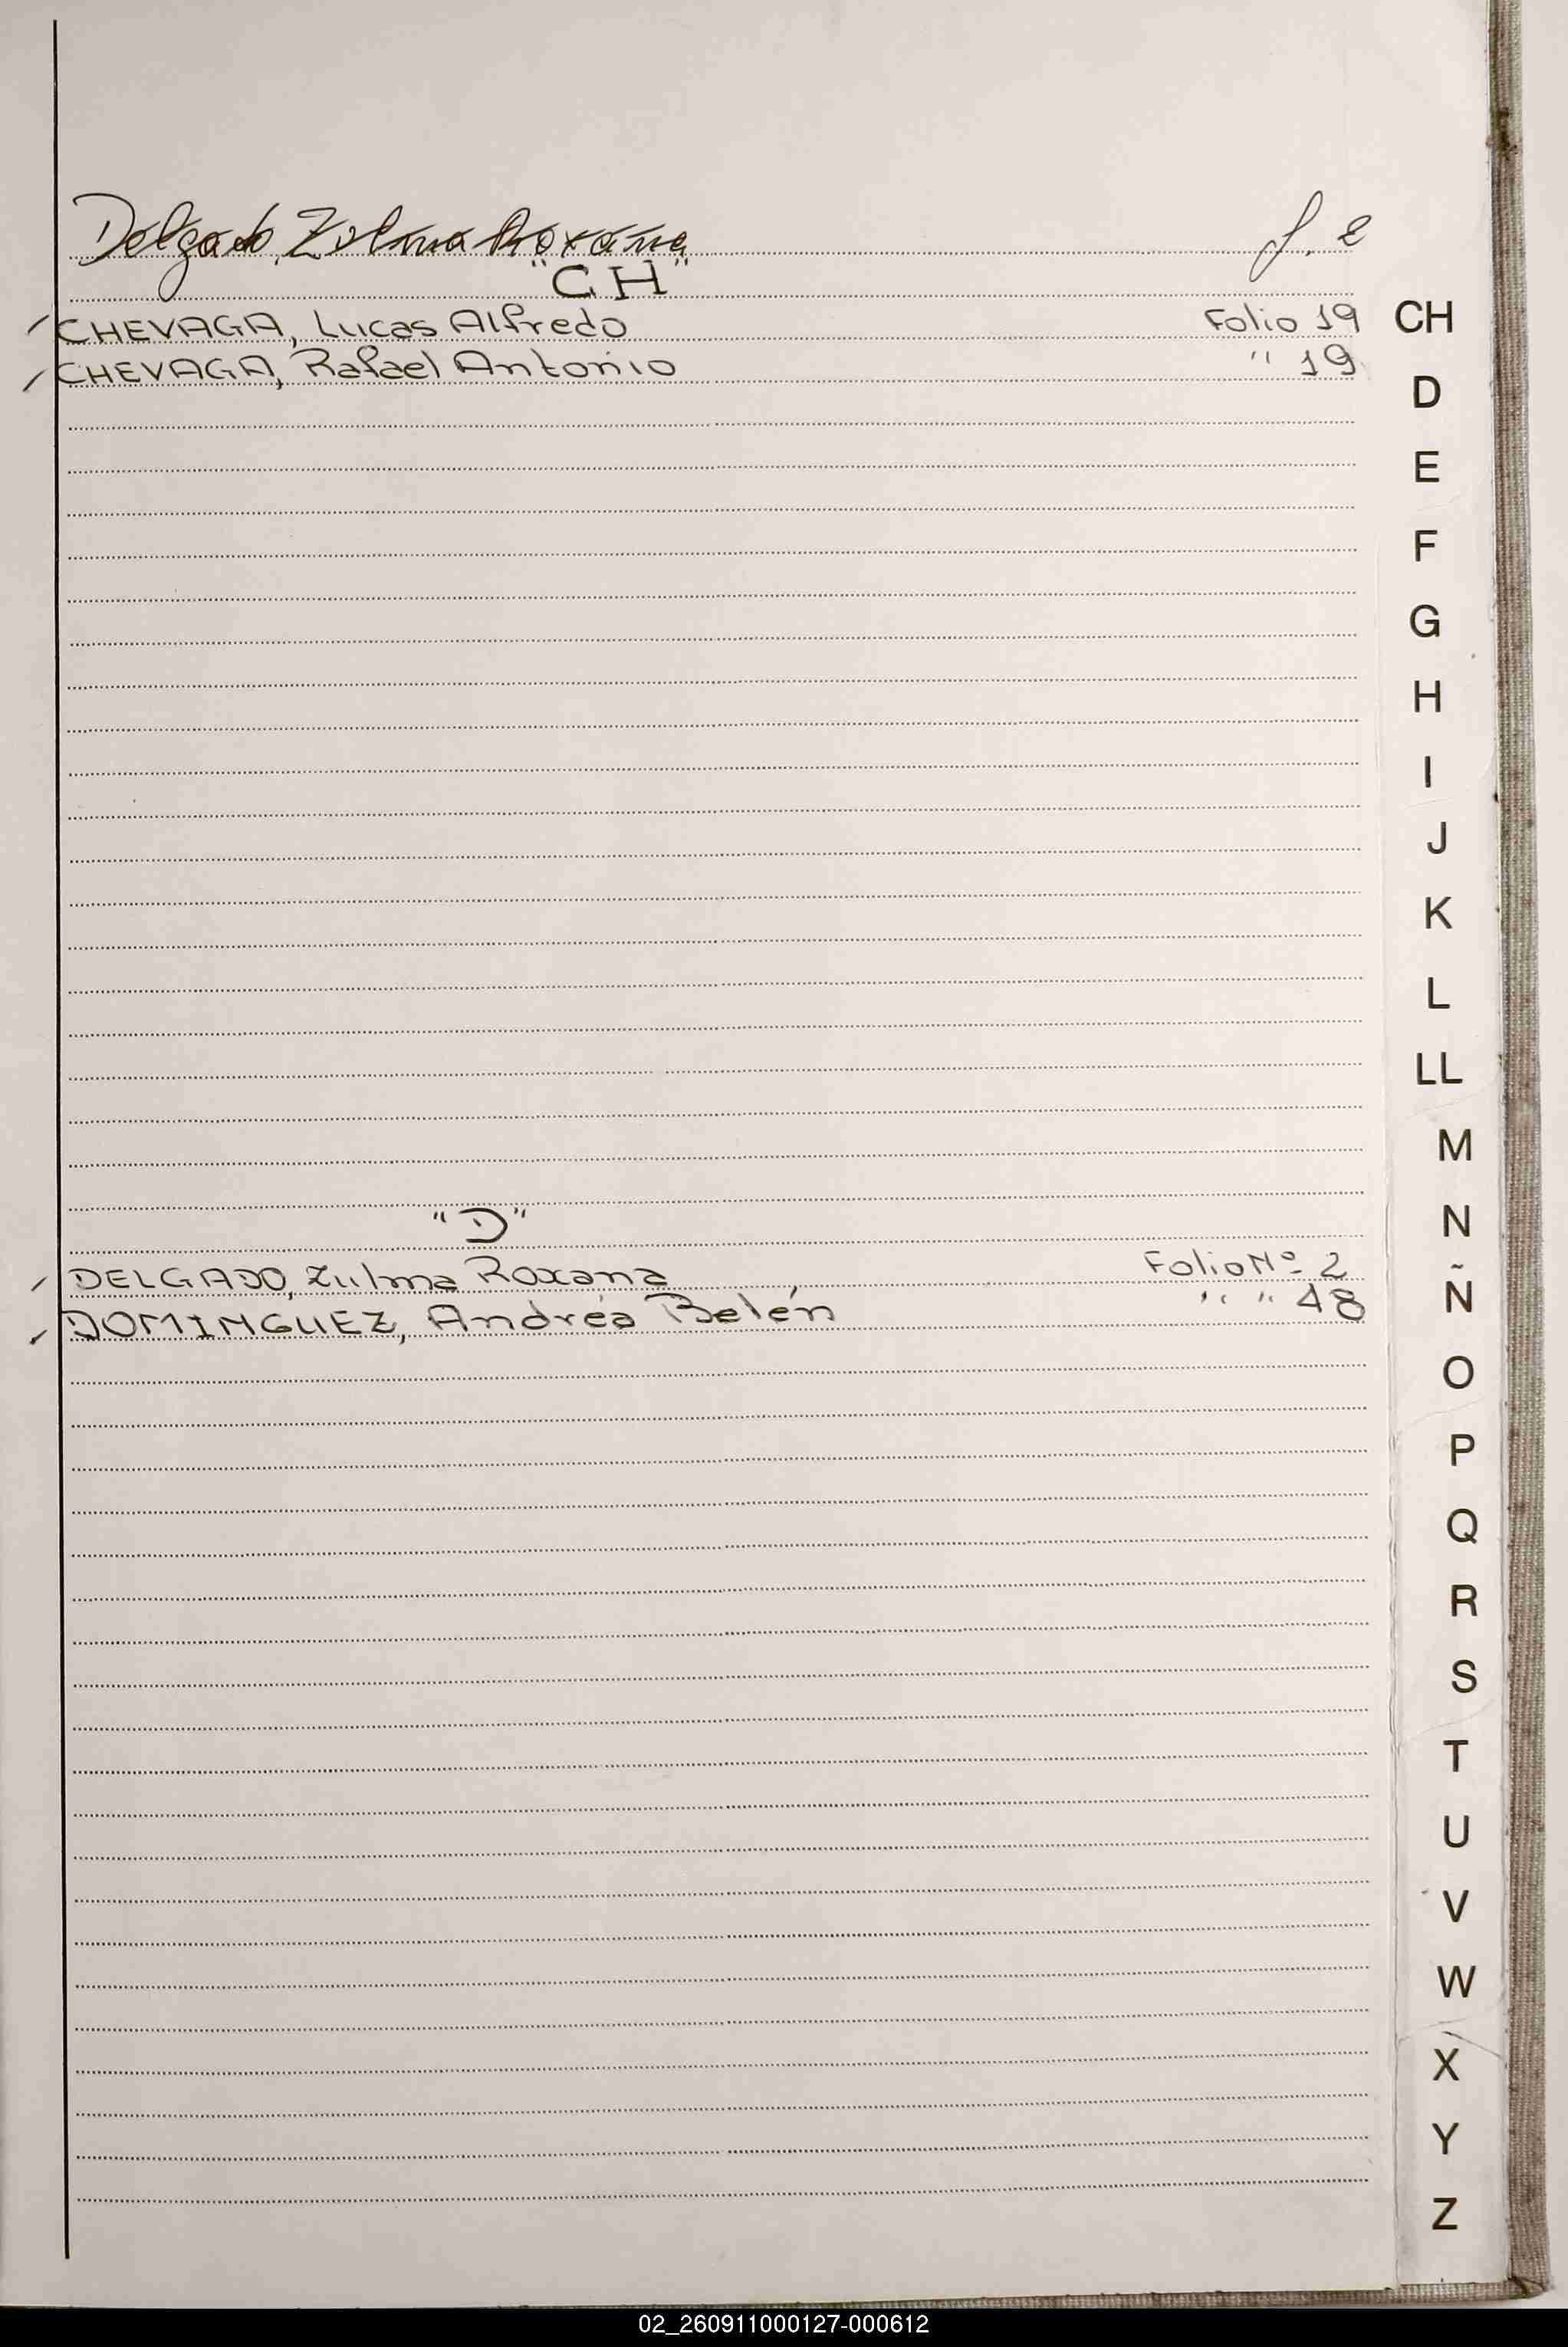 Delgado, Zulma Roxana f. 2
"CH"
CHEVAGA, Lucas Alfredo Folio 19
CHEVAGA, Rafael Antonio " 19
"D"
DELGADO, Zulma Roxana Folio Nº 2
DOMINGUEZ, Andréa Belén " " 48
CH
D
E
F
G
H
I
J
K
L
LL
M
N
Ñ
O
P
Q
R
S
T
U
V
W
X
Y
Z
02_260911000127-000612